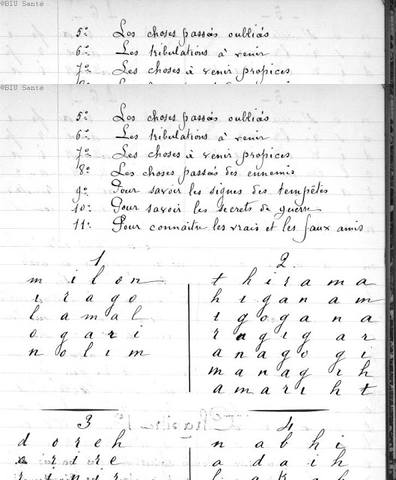 ©BIU Santé
5º Les choses passés oubliés
6º Les tribulations à venir
7º Les choses à venir propices
©BIU Santé
5º Les choses passés oubliés
6º Les tribulations à venir
7º Les choses à venir propices
8º Les choses passés des ennemis
9º Pour savoir les signes des tempêtes
10º Pour savoir les secrets de guerre
11º Pour connaître les vrais et les faux amis
1
m i l o n
i r a g o
l a m a l
o g a r i
n o l i m
2
t h i r a m a
h i g a n a m
i g o g a n a
r a g i g a r
a n a g o g i
m a n a g i h
a m a r i h t
3
d o r e h
o r i r e
4
n a b h i
a d a i h